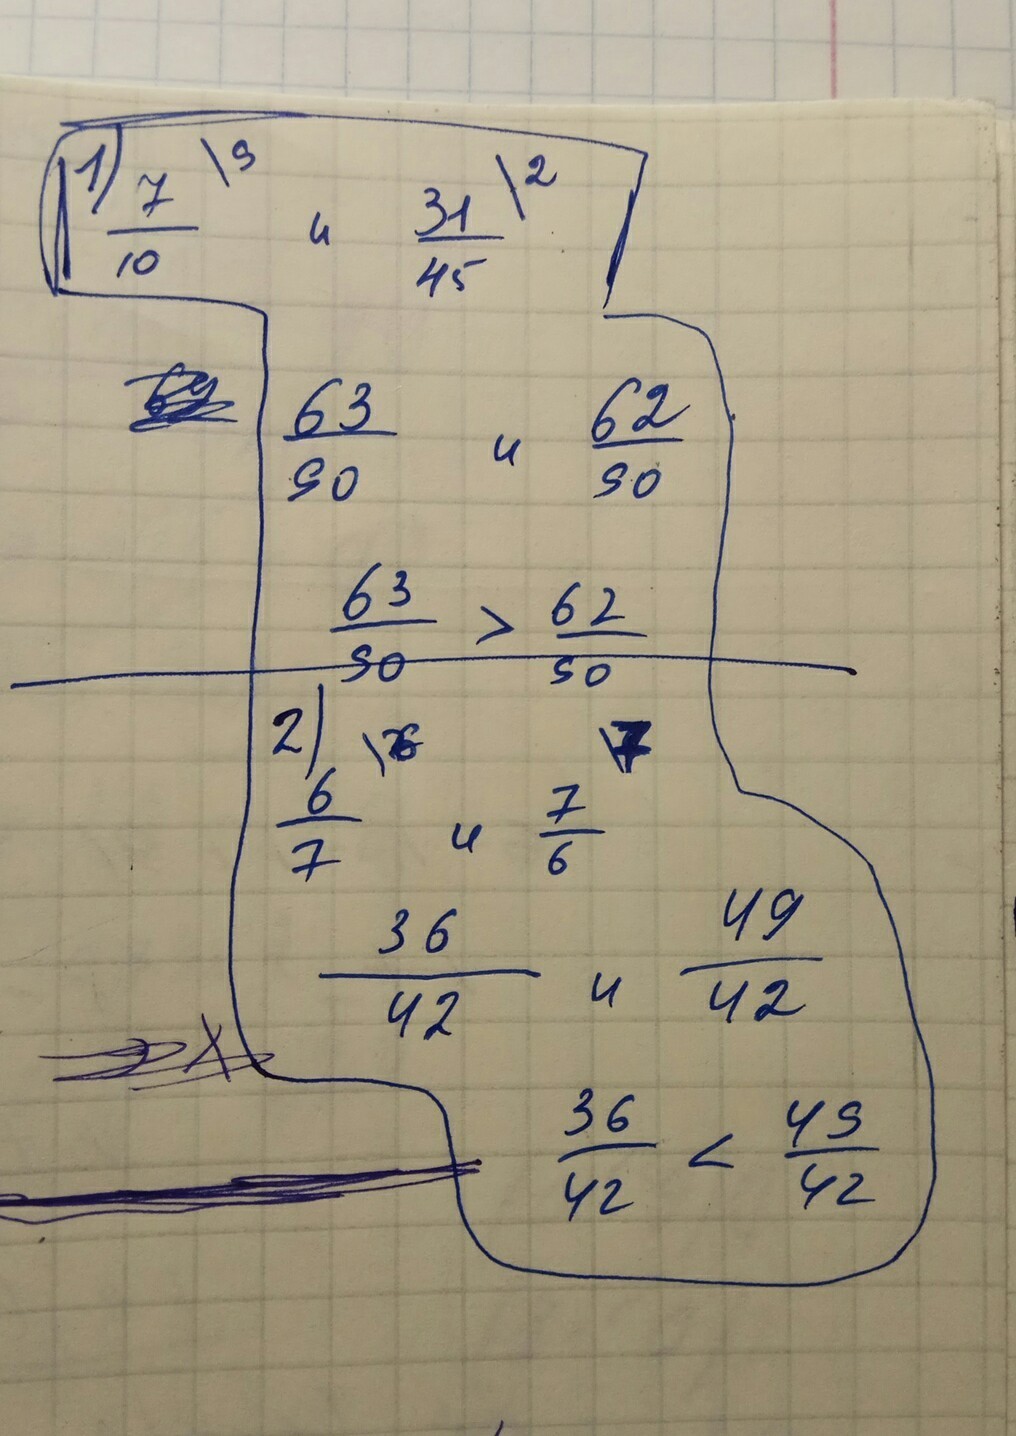 1) 7/10 \9 и 31/45 \2
63/90 и 62/90
63/90 > 62/90
2) 6/7 \6 и 7/6 \7
36/42 и 49/42
36/42 < 49/42